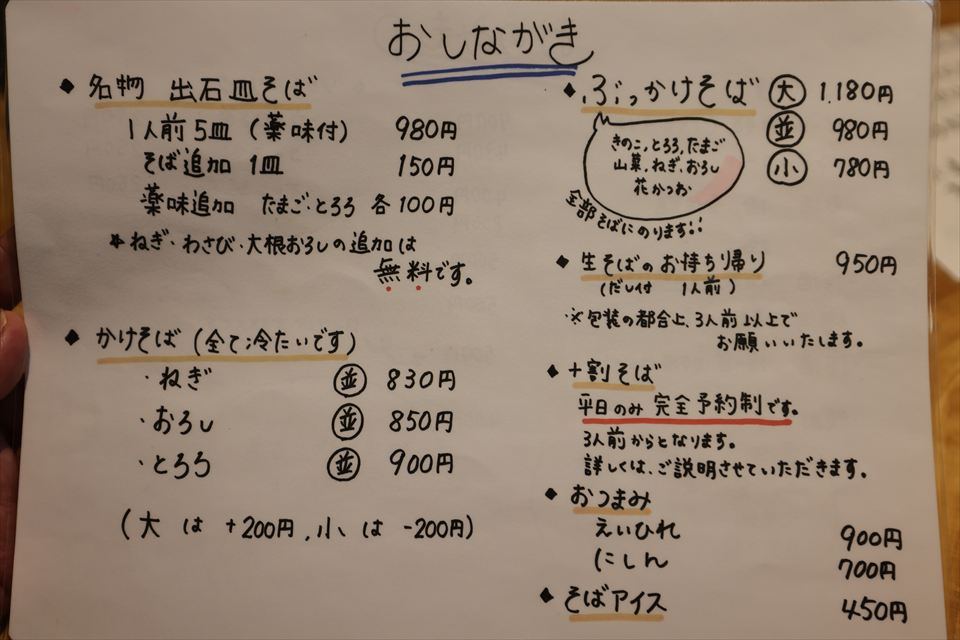 おしながき
◆ 名物 出石皿そば
1人前5皿(薬味付) 980円
そば追加 1皿 150円
薬味追加 たまご・とろろ 各100円
*ねぎ・わさび・大根おろしの追加は
無料です。
◆ かけそば(全て冷たいです)
・ねぎ 並 830円
・おろし 並 850円
・とろろ 並 900円
(大は +200円、小は -200円)
◆ ぶっかけそば 大 1.180円
並 980円
小 780円
きのこ、とろろ、たまご
山菜、ねぎ、おろし
花かつお
全部そばにのります!!
◆ 生そばのお持ち帰り 950円
(だし付 1人前)
※包装の都合上、3人前以上で
お願いいたします。
◆ 十割そば
平日のみ 完全予約制です。
3人前からとなります。
詳しくは、ご説明させていただきます。
◆ おつまみ
えいひれ 900円
にしん 700円
◆ そばアイス 450円